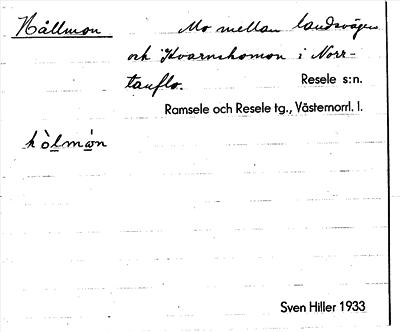 Hållmon
Mo mellan landsvägen
och Kvarnshomon i Norr-
tanflo. Resele s:n.
Ramsele och Resele tg., Västernorrl. l.
hòlmón
Sven Hiller 1933